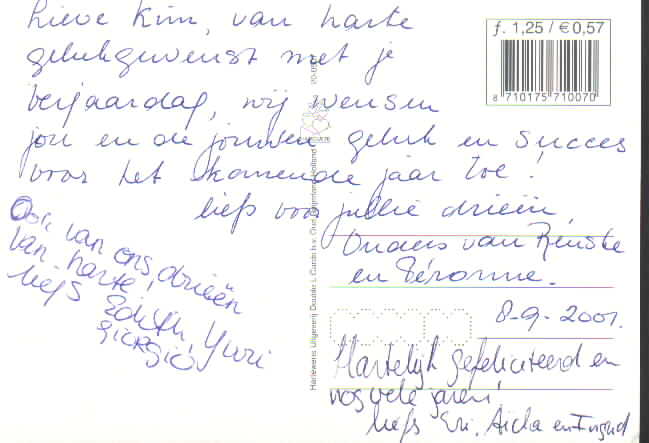 Lieve Kim, van harte
gelukgewenst met je
verjaardag, wij wensen
jou en de jouwen geluk en succes
voor het komende jaar toe!
liefs voor jullie drieën,
Ouders van Renske
en Péronne.
Ook van ons drieën
van harte,
liefs Edith, Yuri
Giorgio
8-9-2001.
Hartelijk gefeliciteerd en
nog vele jaren,
liefs Aicha en Ingrid
f. 1,25 / € 0,57
8 710175 710070